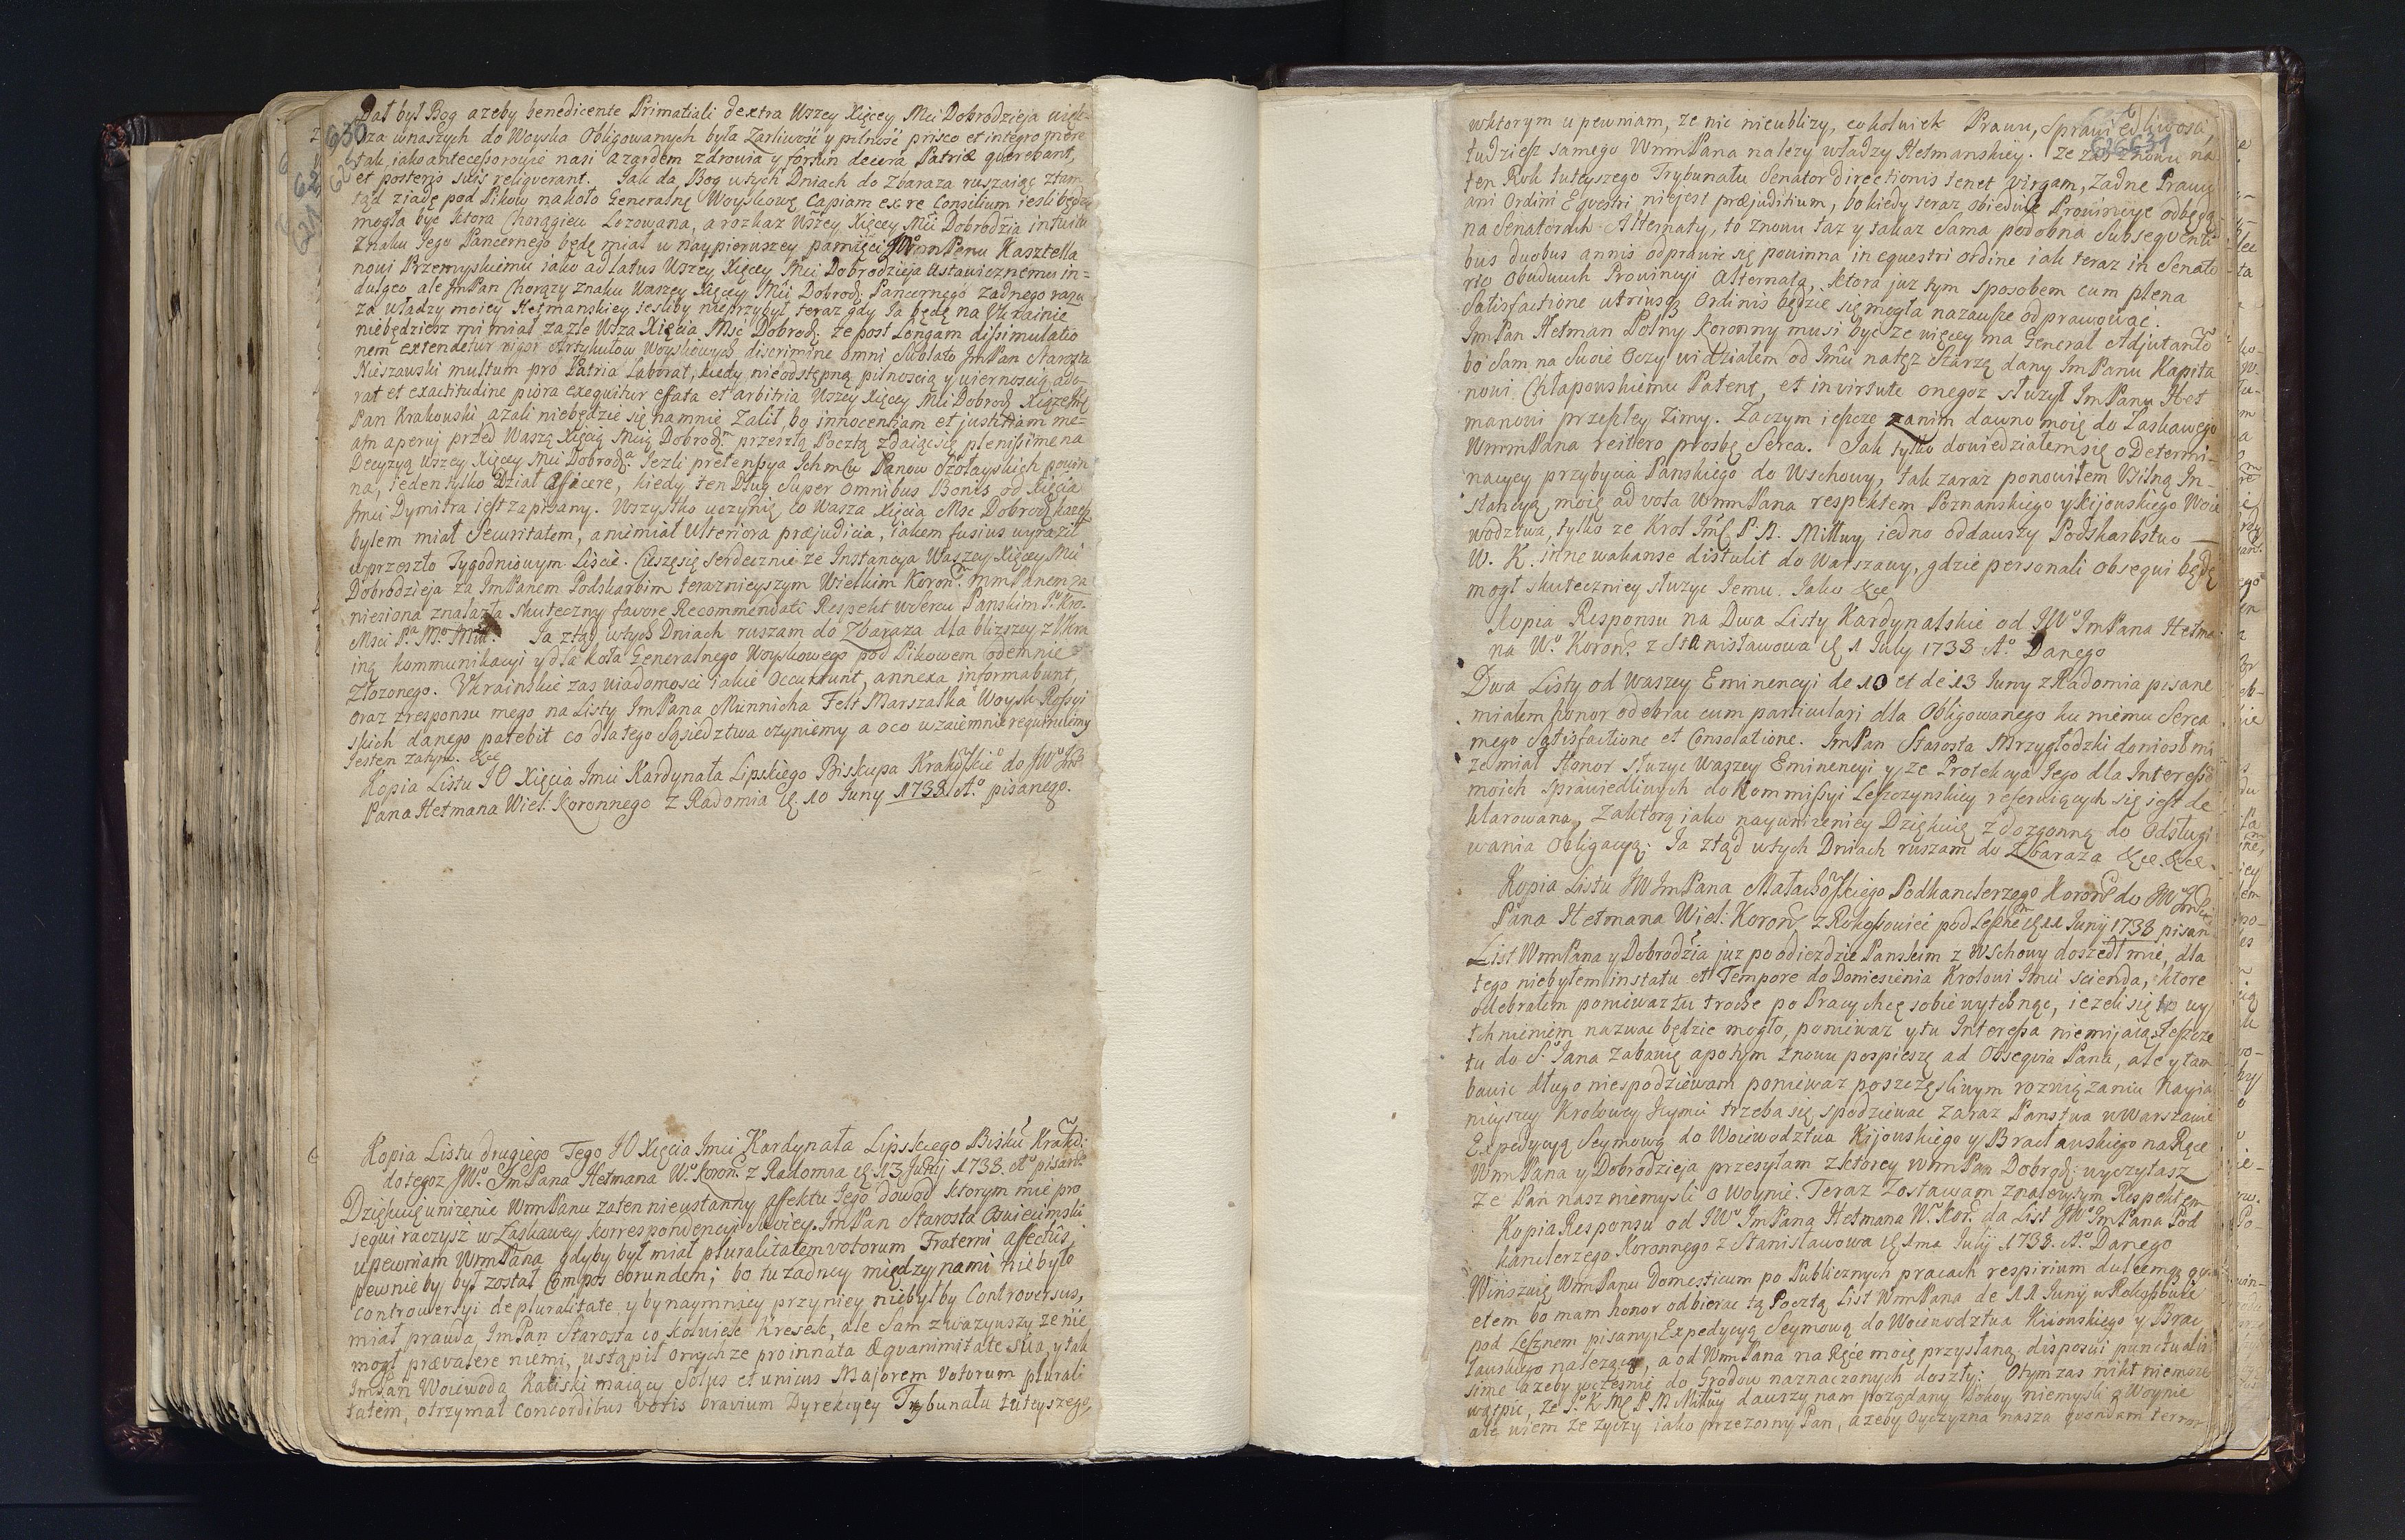 Dał był Bog azeby benedicente Primatiali dextra Wszey Xięcey Mci Dobrodzieja więk-
sza wnaszych do Woyska Obligowanych była Zarliwość y pilność prisco et integro more
tak iako antecessorowie nasi azardem zdrowia y fortun decora Patriæ querebant,
et posteris suis reliquerant. Jak da Bog w tych Dniach do Zbaraza ruszaiąc ztam
tąd ziadę pod Pikow na koło Generalne Woyskowe Capiam ex re Consilium iesli będzie
mogła być ktora Chorągiew Lozowana, a rozkaz Wszey Xięcey Mci Dobrodzia intuitu
Znaku Jego Pancernego będę miał w naypierwszey pamięci JWmPanu Kasztella
nowi Przemyskiemu iako ad latus Wszey Xięcey Mci Dobrodzieja Ustawicznemu in=
dulgeo ale JmPan Chorąży Znaku Waszey Xięcey Mci Dobrodz Pancernego zadnego razu
za władzy moiey Hetmanskiey iesliby nieprzybył teraz gdy Ja będę na Ukrainie
niebędziesz mi miał zazle Wsza Xięcia Msc Dobrodz ze post Longam dissimulatio
nem extendetur rigor Artykułow Woyskowych discrimine omni Sublato JmPan Starosta
Kiszawski multum pro Patria laborat, kiedy nieodstępną pilnoscią y wiernoscią ado-
rat et exactitudine piora exequitur effata et arbitria Wszey Xięcey Mci Dobrodz Xiąze Jmć
Pan Krakowski azali niebędzie się namnie Zalił, bo innocentiam et justitiam me-
am aperui przed Waszą Xięcią Mcią Dobrodz przeszłą Pocztą zdaiąc się plenissime na
Decyzyą Wszey Xięcey Mci Dobrodz Jezli pretensya Ichmciw Panow Ozołayskich powin
na, ieden tylko Dział afficere, kiedy ten Dług Super omnibus Bonis od Xięcia
Jmci Dymitra iest zapisany. Wszytko uczynię co Wasza Xięcia Msc Dobrodz każesz
bylem miał Securitatem, a niemiał Ulteriora præjudicia, iakem fusius wyraził
w przeszło Tygodniowym Liście. Cieszę się serdecznie ze Instancya Waszey Xięcey Mci
Dobrodzieja za JmPanem Podskarbim teraznieyszym Wielkim Koron. mmPanem za
niesiona znalazła skuteczny favore Recommendati Respekt w sercu Panskim J. Kro-
Msci P. M. Mił. Ja ztąd w tych Dniach ruszam do Zbaraza dla blizszey z Ukra
iną kommunikacyi y dla koła Generalnego Woyskowego pod Pikowem odemnie
Złozonego. Ukrainskie zas wiadomosci iakie occurrunt, annexa informabunt,
oraz z responsu mego na Listy JmPana Münnicha Felt Marszałka Woysk Rossyi
skich danego patebit co dla tego Sąsiedztwa czyniemy a o co wzaiemnie requirulimy
Jestem zatym. &c
Kopia Listu JO Xięcia Jmci Kardynała Lipskiego Biskupa Krakowskie do JW Jmć
Pana Hetmana Wiel: Koronnego z Radomia d. 10 Juny 1738 A° pisanego.
Kopia Listu drugiego Tego JO Xięcia Jmci Kardynała Lipskiego Bisku Krako:
do tegoz JW° JmPana Hetmana W° Koron: z Radomia d. 13 Junij 1738. A° pisane
Dziękuię unizenie WmmPanu za ten nieustanny affektu Jego dowod ktorym mie pro
sequi raczysz w Łaskawey korrespondencyi Swoiey. JmPan Starosta Oswiecimski
upewniam WmmPana gdyby był miał pluralitatem votorum Fraterni affectus,
pewnie by był został Compos eorundem; bo tu zadney między nami niebyło
controwersyi de pluralitate, y bynaymniey przyniey niebyłby Controversus,
miał prawda JmPan Starosta co kolwiek Kresek, ale sam zwazywszy ze nie
mogł prævalere niemi, ustąpił onych ze pro innata æquanimitate sua, y tak
JmPan Woiewoda Kaliski maiący Solus et unicus Majorem Votorum plurali
tatem, otrzymał concordibus votis bravium Dyrekcyey Trybunału tuteyszego,
630
w ktorym upewniam, ze nic nieublizy, cokolwiek Prawu, Sprawiedliwości,
tudziesz samego WmmPana nalezy władzy Hetmanskiey. Ze zas znowu na
ten Rok tuteyszego Trybunału Senator directionis tenet virgam, Zadne Prawu
ani Ordini Equestri nie jest præjuditium, bo kiedy teraz obiedwie Prowincye odbędą
na Senatorach Alternaty, to znowu taz y takaz Sama podobna Subsequenti
bus duobus annis odprawic się powinna in equestri ordine iak teraz in Senato
rio Obudwuch Prowincyi Alternata, ktora juz tym sposobem cum plena
Satisfactione utriusq Ordinis będzie się mogła nazawsze odprawować.
JmPan Hetman Polny Koronny musi być ze więcey ma General Adjutantow
bo Sam na Swoie Oczy widziałem od Jmci natęz Szarzę dany JmPanu Kapita
nowi Chłapowskiemu Patent, et in virtute onegoz służył JmPanu Het
manowi przeszłey Zimy. Zaczym ieszcze zanim dawno moię do Łaskawego
WmmPana reitero prosbę Serca. Jak tylko dowiedziałem się o Determi-
nacyey przybycia Panskiego do Wschowy, tak zaraz ponowiłem Usilną In-
stancyą moię ad vota WmmPana respektem Poznanskiego y Kijowskiego Woie
wodztwa, tylko ze Krol Jmć P. N. Miłłwy iedno oddawszy Podskarbstwo
W. K. inne wakanse distulit do Warszawy, gdzie personali obsequi będę
mogł skuteczniey służyc Jemu. Jako &c
Kopia Responsu na Dwa Listy Kardynalskie od JW° JmPana Hetma
na W° Koron: z Stanisławowa d. 1 July 1738 A° Danego
Dwa Listy od Waszey Eminencyi de 10 et de 13 Juny z Radomia pisane
miałem honor odebrac cum particulari dla Obligowanego ku niemu Serca
mego Satisfactione et Consolatione. JmPan Starosta Mrzygłodzki doniosł mi
ze miał Honor służyc Waszey Eminencyi y ze Protekcya Jego dla Interess
moich Sprawiedliwych do Kommissyi Leszczynskiey referuiących się iest de
klarowana, Za ktorą iako nayunizeniey Dziękuię z dozgonną do odsługi
wania Obligacyą. Ja ztąd w tych Dniach ruszam do Zbaraza &c. &c.
Kopia Listu JW JmPana Małachowskiego Podkanclerzego Koron do JW Jmci
Pana Hetmana Wiel: Koron z Rokossowiec pod Lesznem d. 11 Junij 1738 pisan
List WmmPana y Dobrodzia juz po odiezdzie Panskim z Wschowy doszedł mie, dla
tego niebyłem in statu et Tempore do Doniesienia Krolowi Jmci scienda, ktore
odebrałem poniewaz tu troche po Pracy chcę sobie wytchnąc, iezeli się to wy
tchnieniem nazwac będzie mogło, poniewaz y tu Interessa niemijaią. Jeszcze
tu do S. Jana zabawię a potym znowu pospieszę ad Obsequia Pana, ale y tam
bawic długo niespodziewam poniewaz po szczęsliwym rozwiązaniu Nayia
nieyszey Krolowey Jeymci trzeba się spodziewac zaraz Panstwa w Warszawie
Expedycyą Seymową do Woiewodztwa Kijowskiego y Bracławskiego na Ręce
WmmPana y Dobrodzieja przesyłam z ktorey WmmPan Dobrodz: wyczytasz
ze Pan nasz niemysli o Woynie. Teraz Zostawam z nalezytym Respektem
Kopia Responsu od JW° JmPana Hetmana W° Kor: da List JW° JmPana Pod
kanclerzego Koronnego z Stanisławowa d. 1ma Julij 1738. A° Danego
Winszuię WmmPanu Domesticum po Publicznych pracach respirium dulcemq qui
etem bo mam honor odbierac tą Pocztą List WmmPana de 11 Junij w Rokossowie
pod Lesznem pisany, Expedycyą Seymową do Woiewodztwa Kiiowskiego y Brac
ławskiego nalezącą, a od WmmPana na Ręce moię przysłaną disposui punctualis
sime azeby wczesnie do Grodow naznaczonych doszły; O tym zas nikt niemoze
wątpic, ze J. K Mć P. N. Miłłwy dawszy nam poządany Pokoy, niemysli o Woynie
ale wiem ze zyczy iako przezorny Pan, azeby Oyczyzna nasza quondam terror